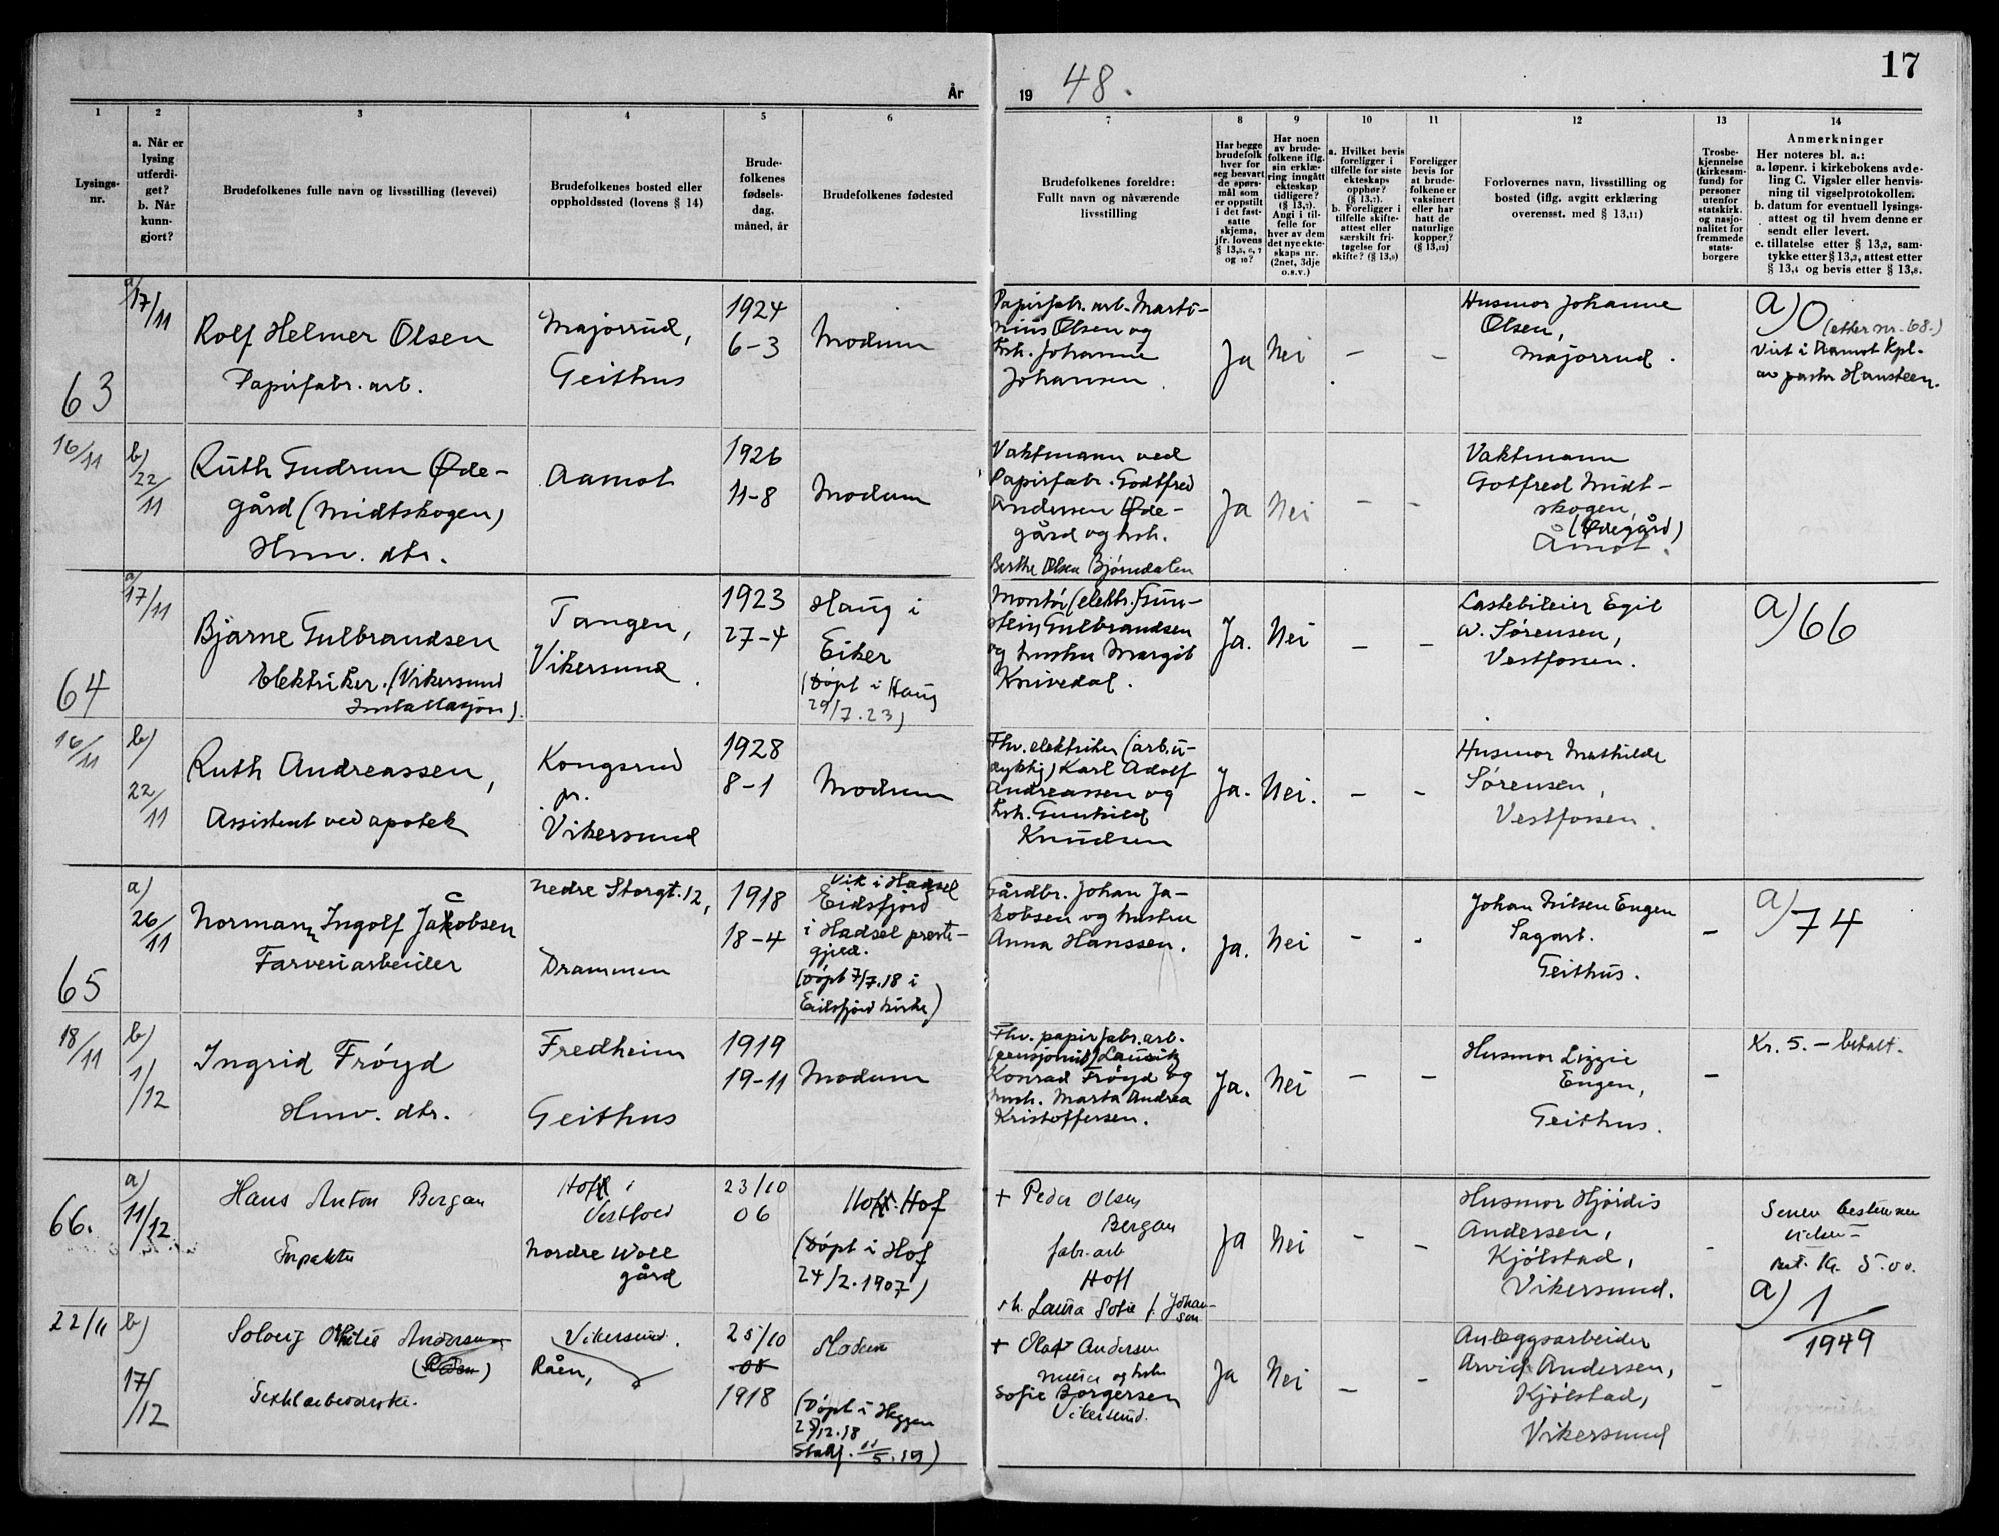 17
År
19 48.
1
2
3
4
5
6
7
8
9
10
11
12
13
14
Lysings-
nr.
a. Når er
lysing
utferdi-
get?
b. Når
kunn-
gjort?
Brudefolkenes fulle navn og livsstilling (levevei)
Brudefolkenes bosted eller
oppholdssted (lovens § 14)
Brude-
folkenes
fødsels-
dag,
måned, år
Brudefolkenes fødested
Brudefolkenes foreldre:
Fullt navn og nåværende
livsstilling
Har begge
brudefolk
hver for
seg besvart
de spørs-
mål som
er oppstilt
i det fast-
satte
skjema,
jfr. lovens
og
Har noen
av brude-
folkene iflg.
sin erklæ-
ring inngått
ekteskap
tidligere?
Angi i til-
felle for
hver av dem
det nye ekte-
skaps nr.
(2net, 3dje
o.s.v.)
a. Hvilket bevis
foreligger i
tilfelle for siste
ekteskaps
opphør?
b. Foreligger i
tilfelle skifte-
attest eller
særskilt fri-
tagelse for
skifte?
Foreligger
bevis for
at brude-
folkene er
vaksinert
eller har
hatt de
naturlige
kopper?
Forlovernes navn, livsstilling og
bosted (iflg. avgitt erklæring
overensst. med § 13,11)
Trosbe-
kjennelse
(kirkesam-
fund) for
personer
utenfor
statskirk.
og nasjo-
nalitet for
fremmede
stats-
borgere
Anmerkninger
Her noteres bl. a.:
a. løpenr. i kirkebokens avde-
ling C. Vigsler eller henvis-
ning til vigselprotokollen.
b. datum for eventuell lysings-
attest og til hvem denne er
sendt eller levert.
c. tillatelse etter § 13,2, sam-
tykke etter § 13,3, attest etter
§ 13,4 og bevis etter § 13,8.
63
16/11
a) 17/11
Rolf Helmer Olsen
Papirfabr. arb.
Majorrud,
Geithus
1924
6-3
Modum
Papirfabr. arb. Marti-
nius Olsen og
hsh. Johanne
Johansen.
Ja
Nei
–
–
Husmor Johanne
Olsen,
Majorrud.
a) 0 (etter nr. 68.)
Viet i Aamot kpl.
av pastor Hansteen.
b) 22/11
Ruth Gudrun Øde-
gård (Midtskogen)
Hmv. dtr.
Aamot
1926
11-8
Modum
Vaktmann ved
Papirfabr. Godtfred
Andersen Øde-
gård og hsh.
Berthe Olsen Bjørndalen
Ja
Nei
–
–
Vaktmann
Gotfred Midt-
skogen,
(Ødegård)
Åmot.
64
16/11
a) 17/11
Bjarne Gulbrandsen
Elektriker. (Vikersund
Installasjon).
Tangen,
Vikersund.
1923
27-4
Haug i
Eiker
(Døpt i Haug
29/7.23)
Montør (elektr.) Gun-
stein Gulbrandsen
og hustru Margit
Knivedal.
Ja.
Nei
–
–
Lastebileier Egil
W. Sørensen,
Vestfossen.
a) 66
b) 22/11
Ruth Andreassen,
Assistent ved apotek
Kongsrud
pr.
Vikersund
1928
8-1
Modum
Fhv. elektriker (arb.u-
dyktig) Karl Adolf
Andreassen og
hsh. Gunhild
Knudsen
Ja.
Nei.
–
–
Husmor Mathilde
Sørensen,
Vestfossen.
65
18/11
a) 26/11
Normann Ingolf Jacobsen
Farveriarbeider
Nedre Storgt. 12,
Drammen
1918
18-4
Vik i Hadsel
Eidsfjord
i Hadsel preste-
gjeld.
(Døpt 7/7.18 i
Eidsfjord kirke)
Gårdbr. Johan Ja-
kobsen og hustru
Anna Hanssen.
Ja.
Nei
–
–
Johan Nilsen Engen
Sagarb.
Geithus.
–
a) 74
b) 1/12
Ingrid Frøyd
Hmv. dtr.
Fredheim
Geithus
1919
19-11
Modum
Fhv. papirfabr. arb.
(pensjonist) Lauritz
Konrad Frøyd og
hush. Marta Andrea
Kristoffersen.
Ja.
Nei
–
–
Husmor Lizzie
Engen,
Geithus.
–
Kr. 5. – betalt.
66.
22/11
a) 11/12
Hans Anton Bergan
Hoff i
Vestfold
Nordre Woll
gård
23/10
06
Hoff. Hof
(Døpt i Hof
24/2.1907)
+ Peder Olsen
Bergan
fabr. arb
Hoff
Laura Sofie f. Johan-
sen
Ja
Nei
–
–
Husmor Hjørdis
Andersen,
Kjølstad,
Vikersund.
–
Senere bestemmer
vielsen –
Bet. Kr. 5.00.
a) 1
1949
b) 17/12
Solveig Othilie Andersen
Vikersund.
Råen,
25/10
08
1918
Modum
(Døpt i Heggen
Stadf. 11/5.19)
+ Olaf Andersen
murer og hsh
Sofie Borgersen
Vikersund.
Ja
Nei
–
–
Anleggsarbeider
Arvid Andersen,
Kjølstad,
Vikersund
–